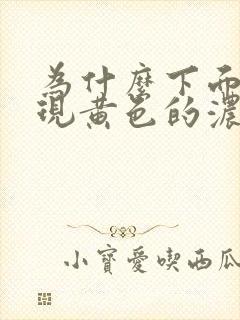 為什麼下而
現黃色的濃
小寶愛喫西瓜